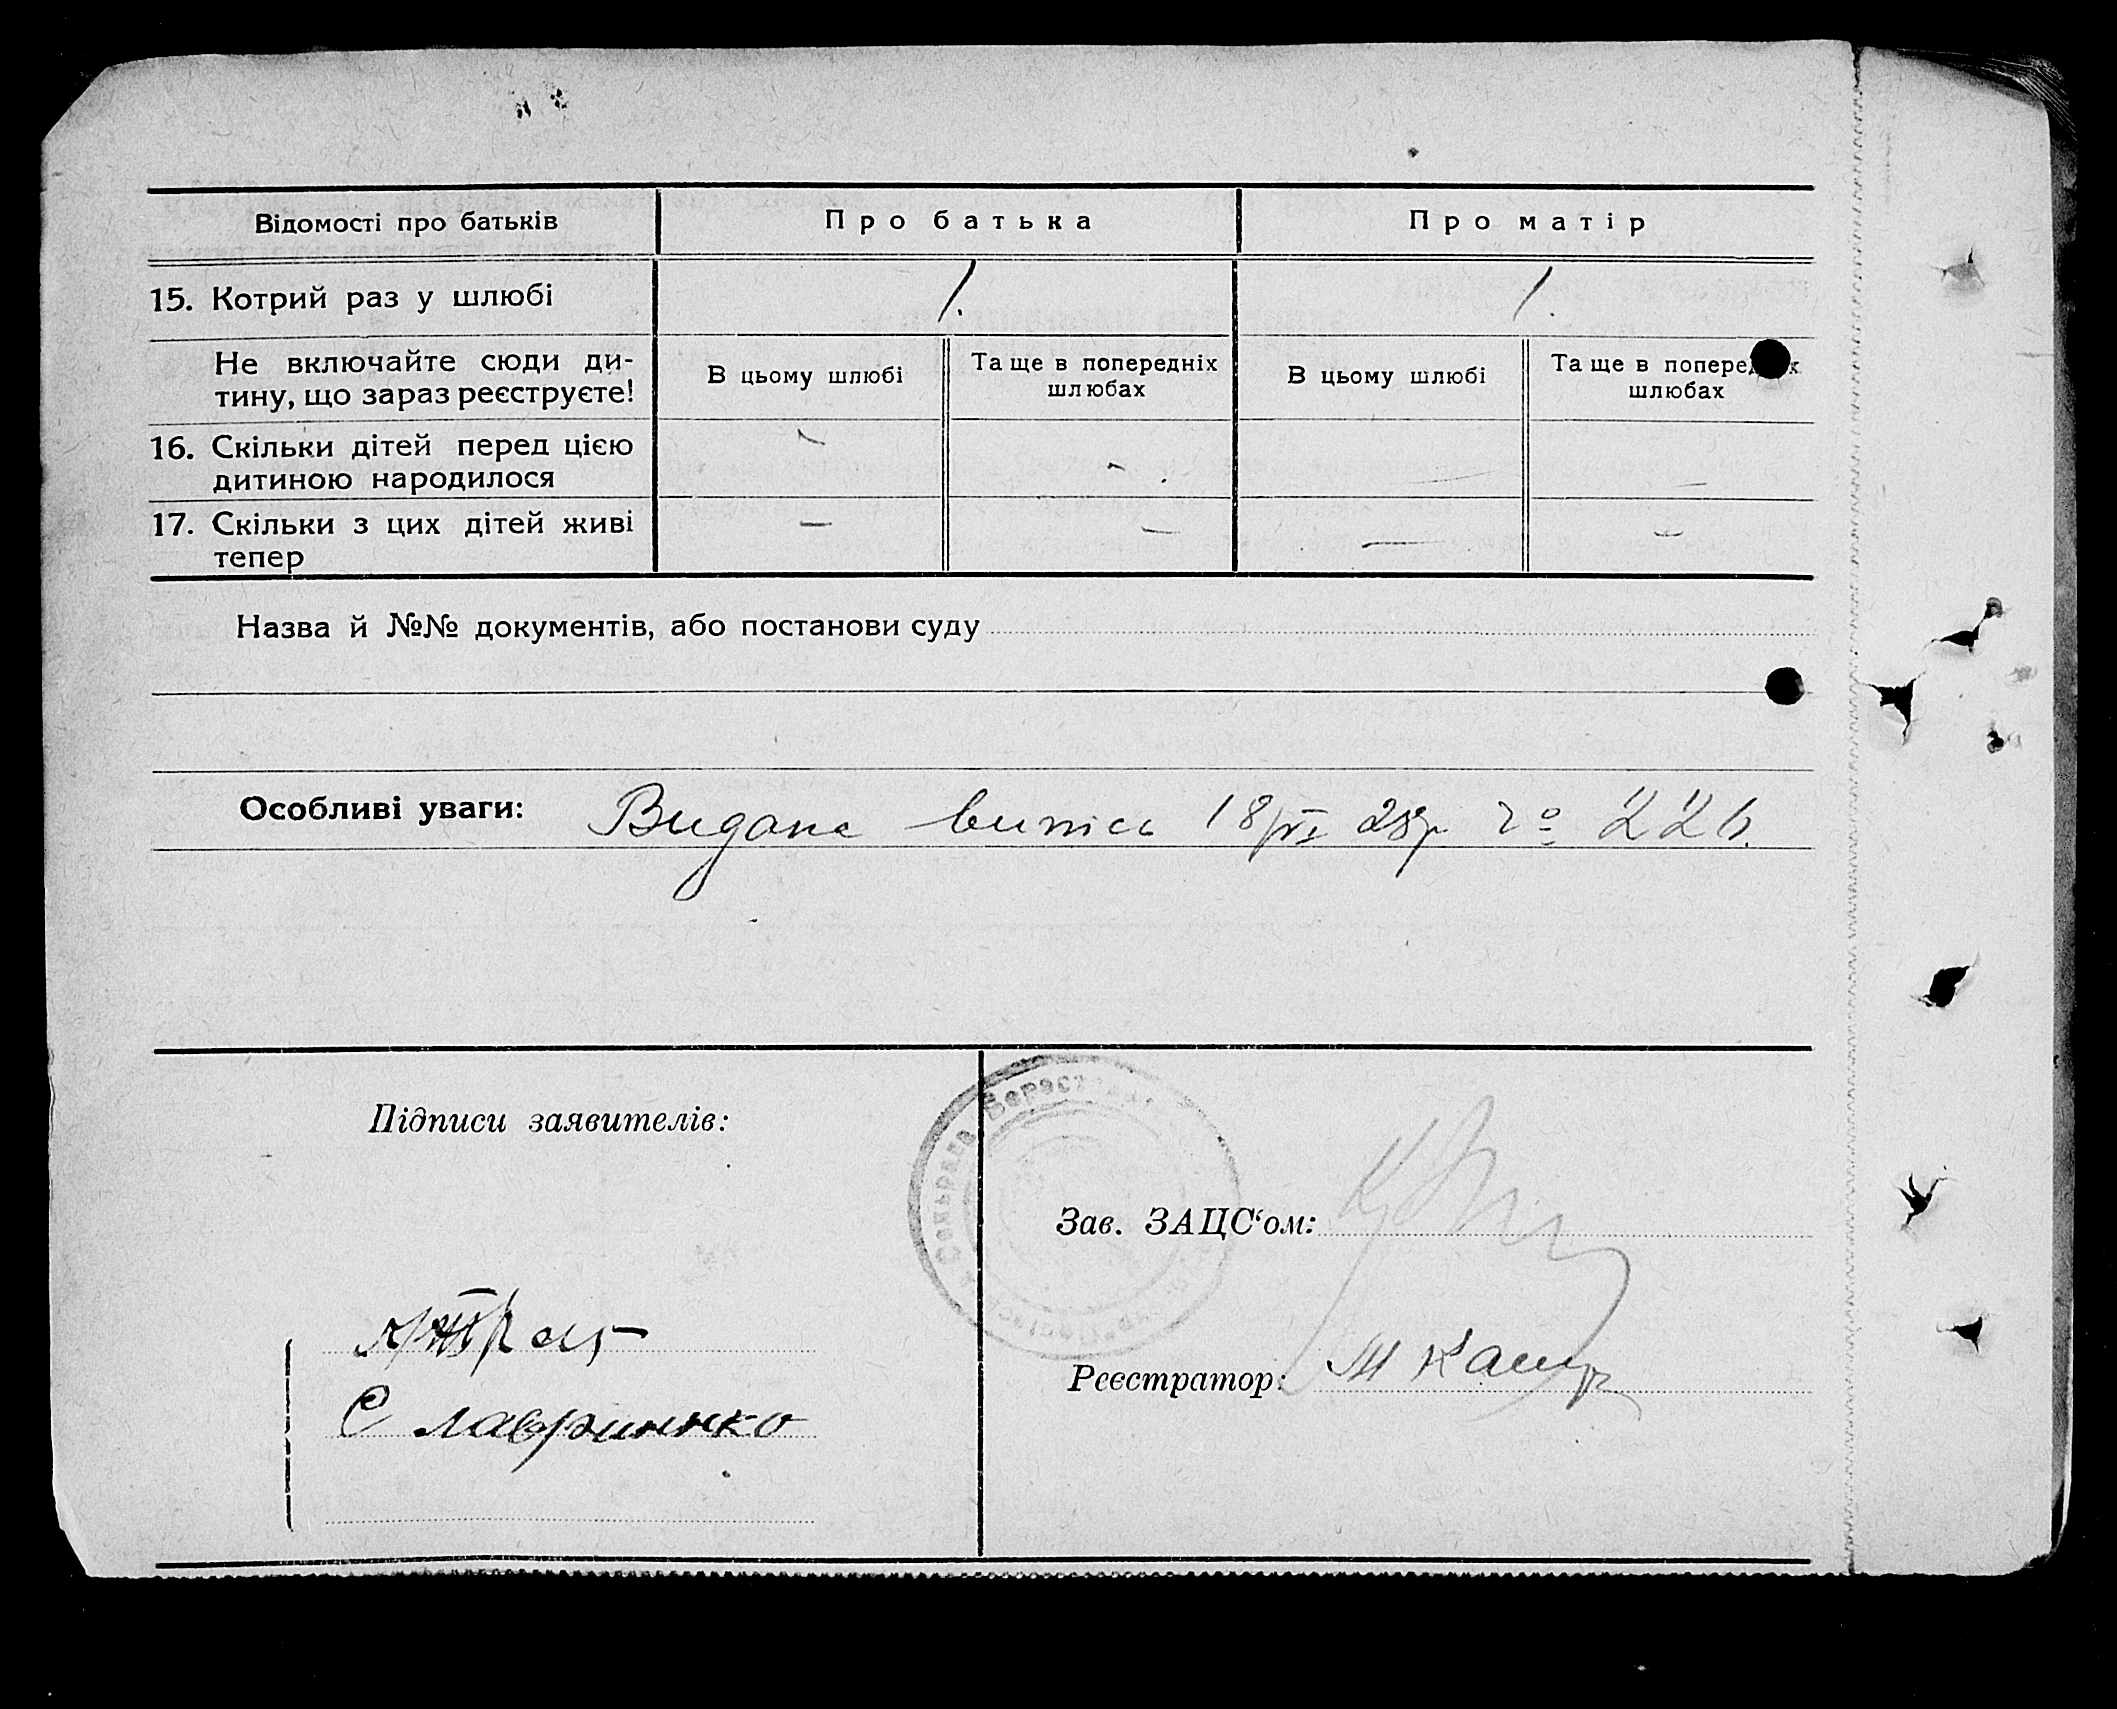 Відомості про батьків Про батька Про матір
15. Котрий раз у шлюбі 1. 1.
Не включайте сюди ди-
тину, що зараз реєструєте!
В цьому шлюбі
Та ще в попередніх
шлюбах
В цьому шлюбі
Та ще в попередніх
шлюбах
16. Скільки дітей перед цією
дитиною народилося
- - - -
17. Скільки з цих дітей живі
тепер
- - - -
Назва й №№ документів, або постанови суду
Особливі уваги: Видана випись 18/VI 28р
Підписи заявителів:
Сільрада
Зав. ЗАЦС‘ом:
Реєстратор: М
Є Лавриннко